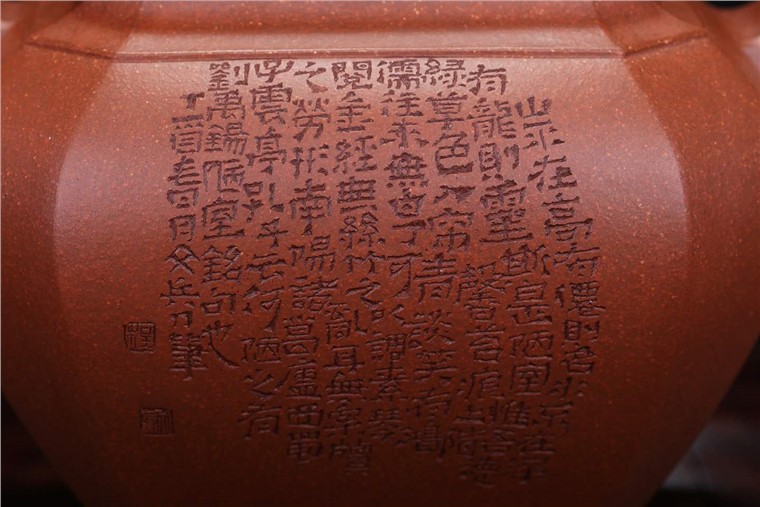 山不在高有僊則名水不在深
有龍則靈斯是陋室惟吾德
馨苔痕上階
綠草色入帘青談笑有鴻
儒往來無白丁可以調素琴
閱金經無絲竹之亂耳無案牘
之勞形南陽諸葛廬西蜀
子雲亭孔子云何陋之有
劉禹錫陋室銘句也
丁酉春月文兵刀筆